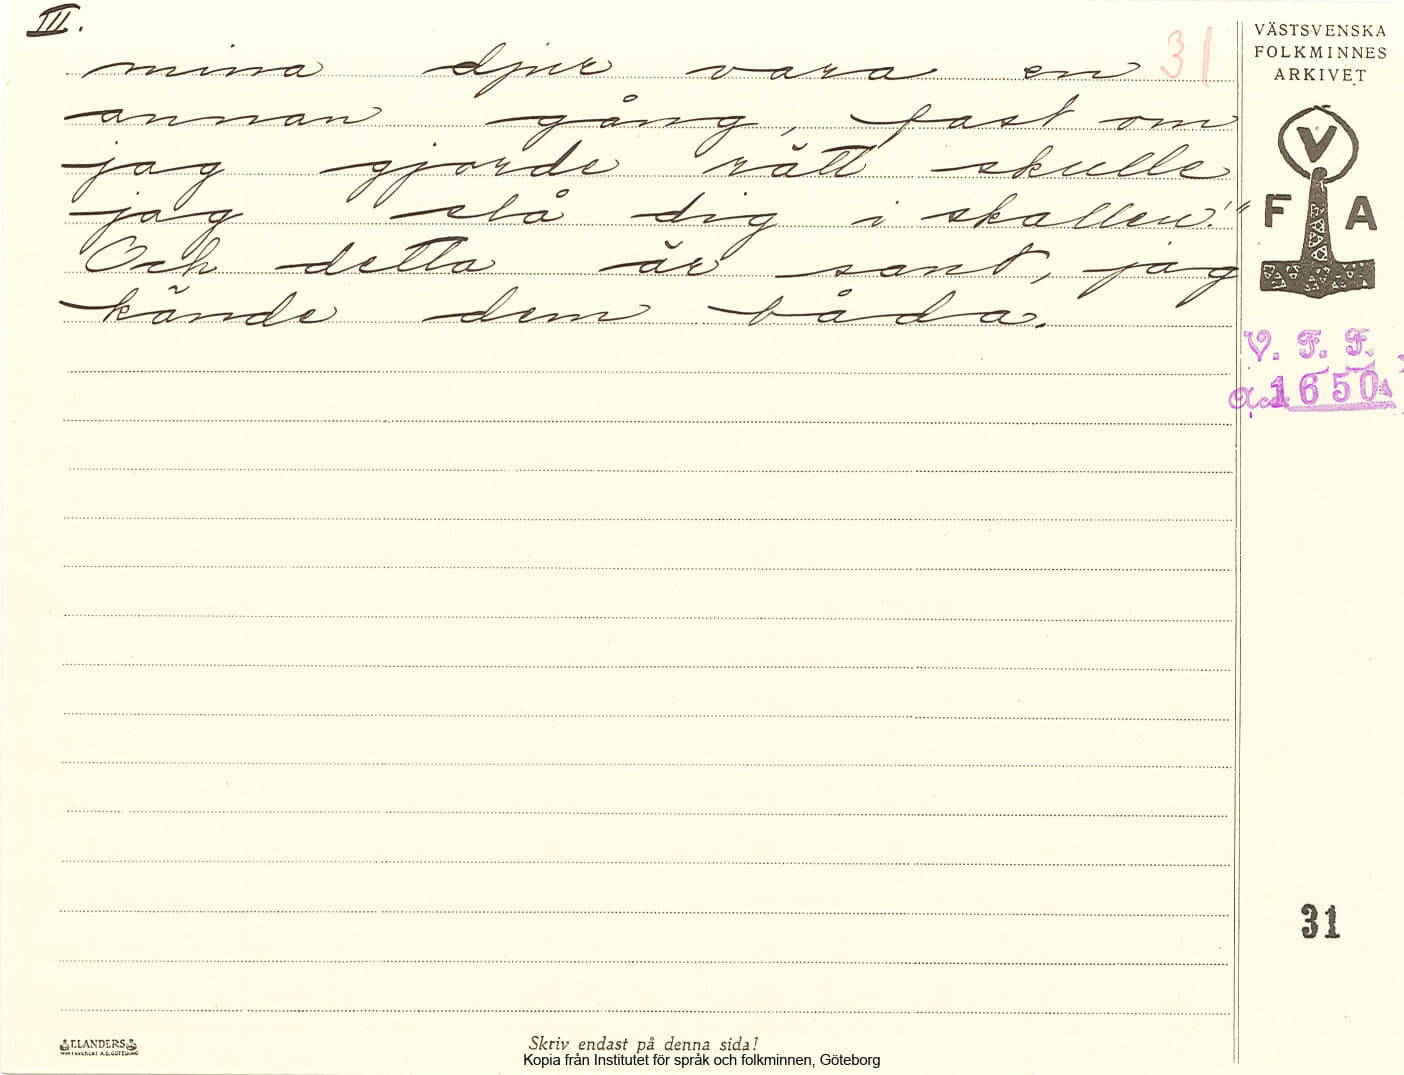 III.
31
mina djur vara en
annan gång, fast om
jag gjorde rätt skulle
jag slå dig i skallen!"
Och detta är sant, jag
kände dem båda.
VÄSTSVENSKA
FOLKMINNES
ARKIVET
V
F A
V. F. F.
Acc. 1650
31
ELANDERS
Skriv endast på denna sida!
Kopia från Institutet för språk och folkminnen, Göteborg